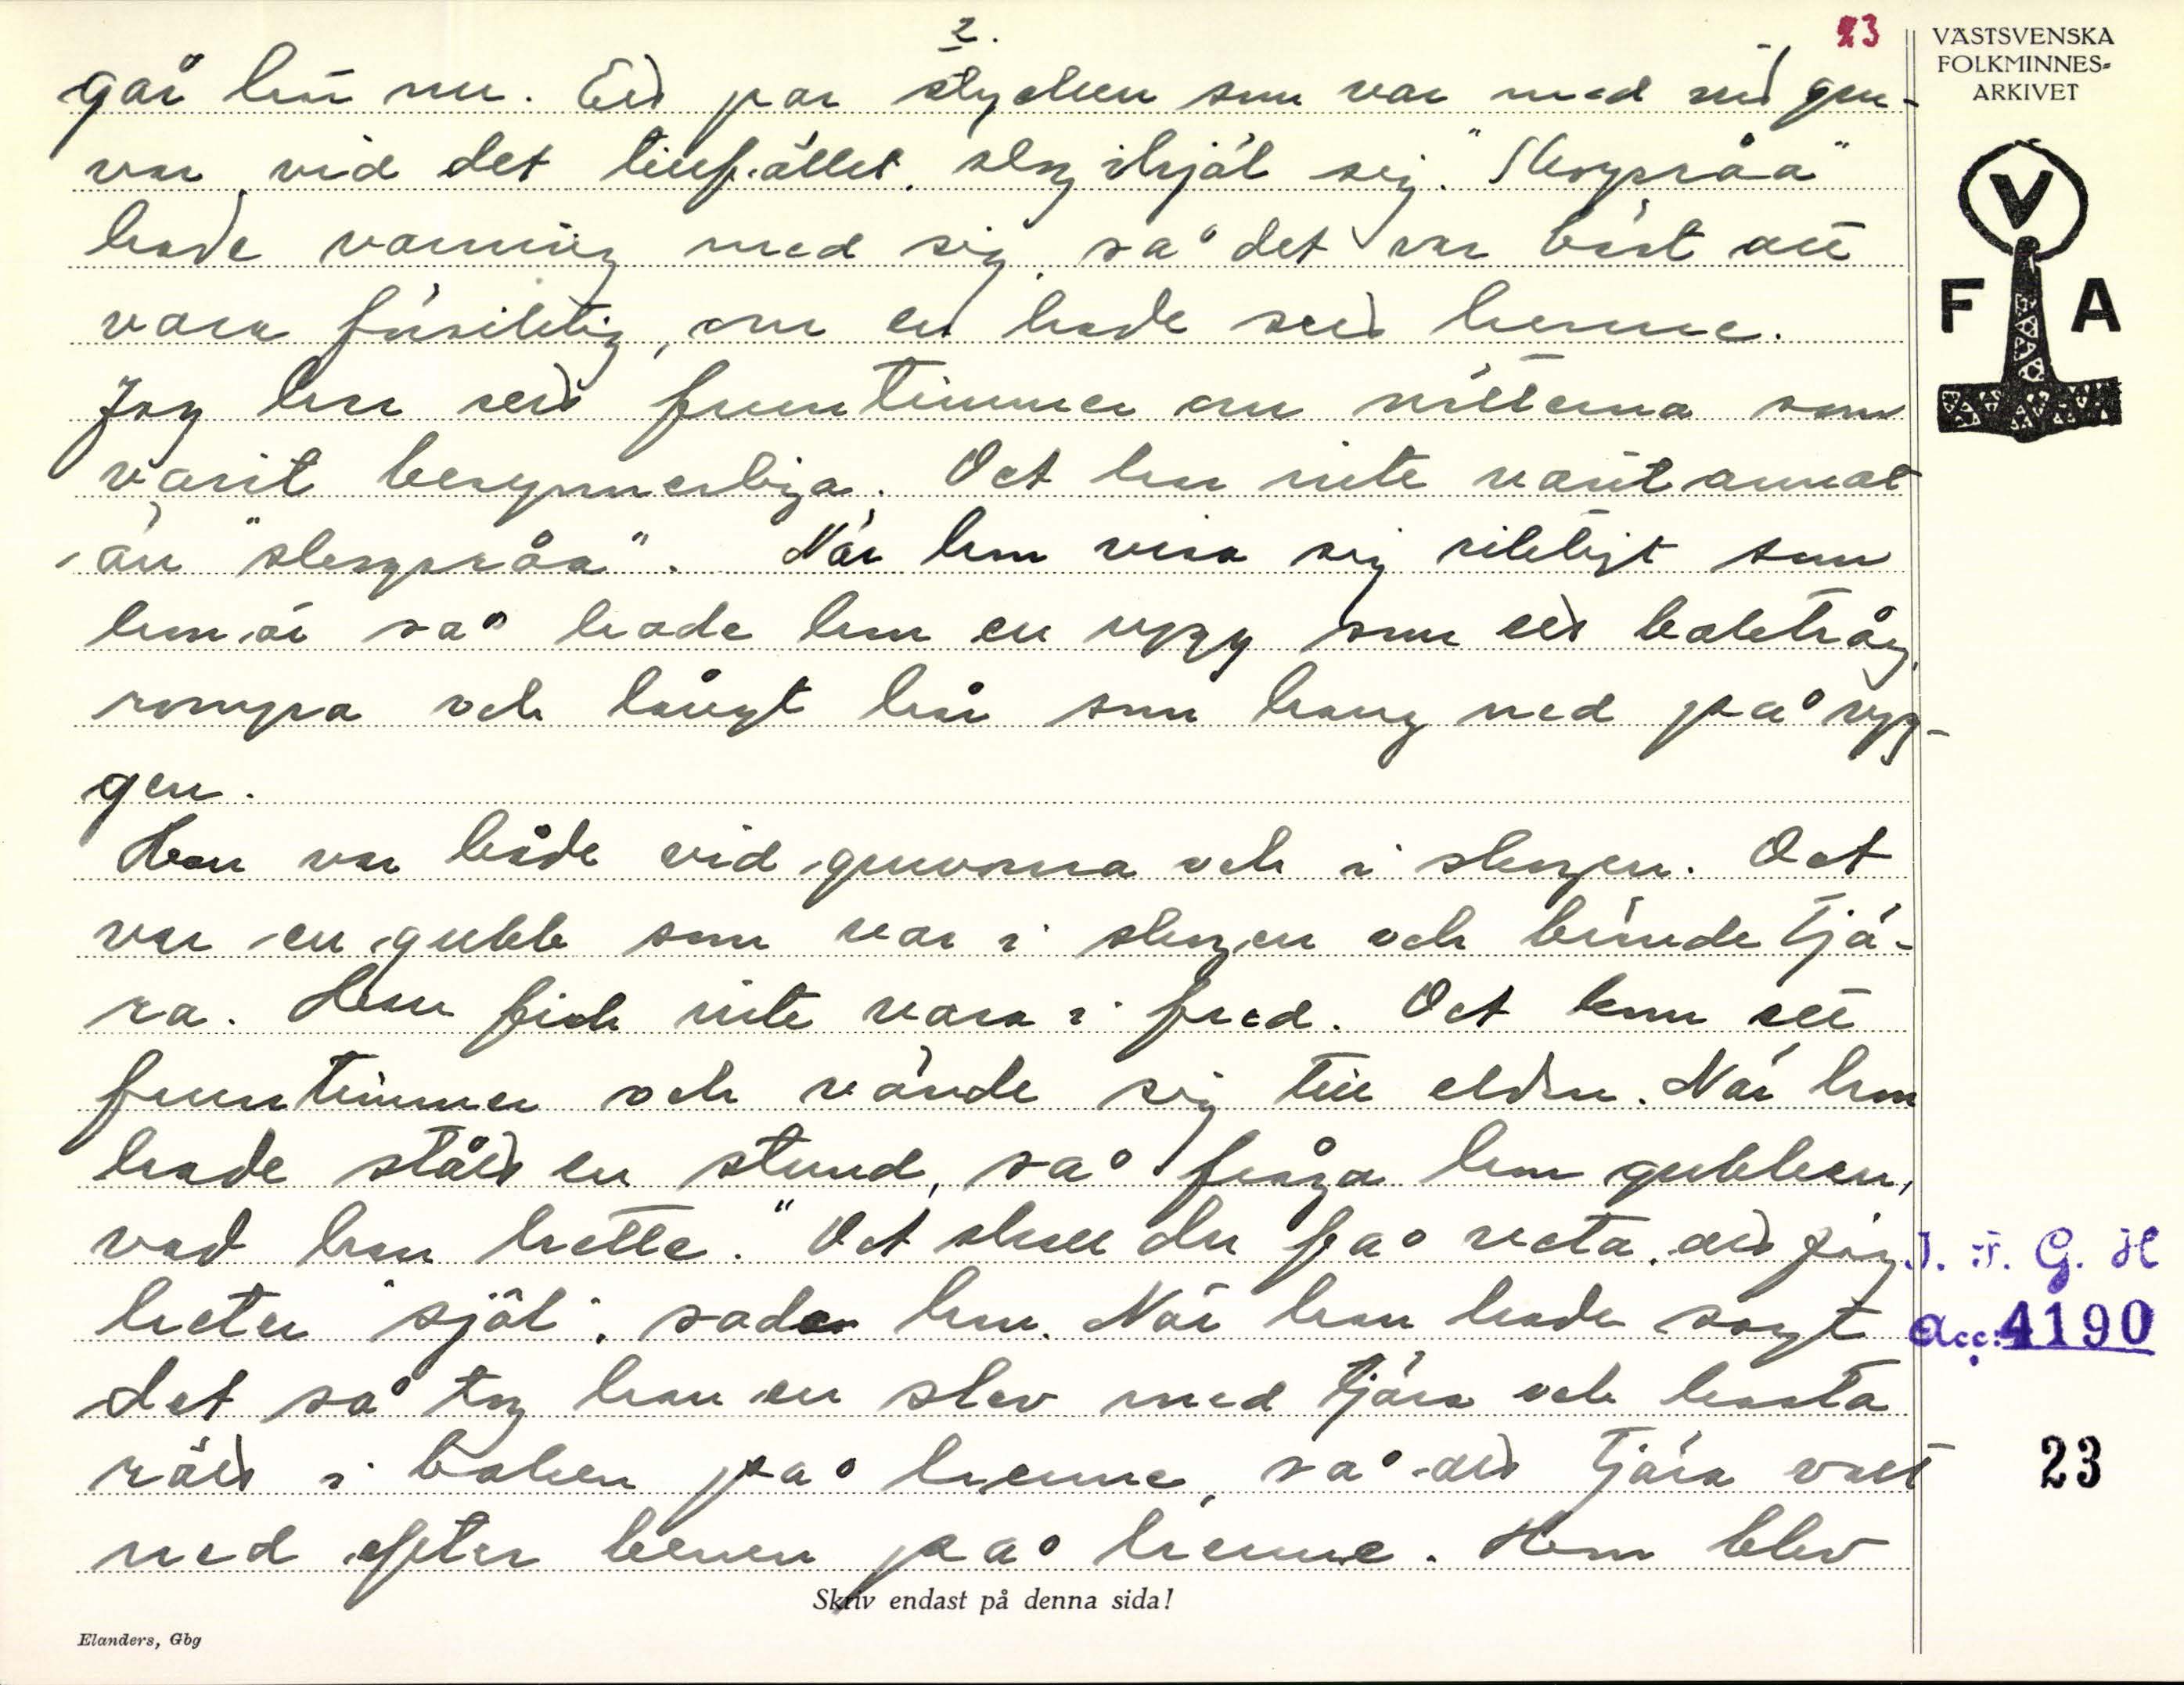 2.
23
går hän nu. Ett par stycken som var med vid gru-
van vid det tillfället, slog ihjäl sig. "Skogsråa"
hade varning med sig, så det var bäst att
vara försiktig, om en hade sett henne.
Jag har sett fruntimmer om nätterna som
varit besynnerliga. Det har inte varit annat
än "skogsråa". När hon visa sig riktigt som
hon är så hade hon en rygg som ett baktråg,
rompa och långt hår som hang ned på ryg-
gen.
Hon var både vid gruvorna och i skogen. Det
var en gubbe som var i skogen och brände tjä-
ra. Han fick inte vara i fred. Det kom ett
fruntimmer och vände sig till elden. När hon
hade stått en stund, så fråga hon gubben,
vad han hette. "Det skall du få veta, att jag
heter "själ", sade han. När han hade sagt
det så tog han en slev med tjära och kasta
rätt i baken på henne, så att tjära rant
ned efter benen på henne. Hon blev
Skriv endast på denna sida!
Elanders, Gbg
VÄSTSVENSKA
FOLKMINNES-
ARKIVET
V
F A
I. F. G. H
Acc: 4190
23